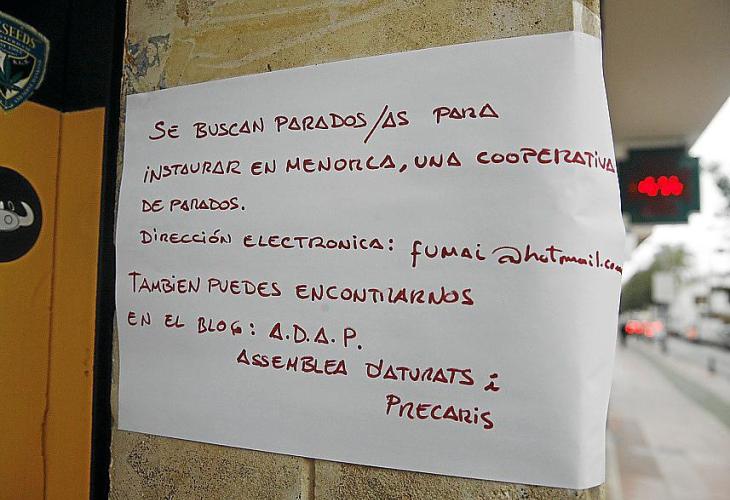 SEEDS
SE BUSCAN PARADOS/AS PARA
INSTAURAR EN MENORCA, UNA COOPERATIVA
DE PARADOS.
DIRECCIÓN ELECTRONICA: fumai@hotmail.com
TAMBIEN PUEDES ENCONTRARNOS
EN EL BLOG: A.D.A.P.
ASSEMBLEA D'ATURATS i
PRECARIS